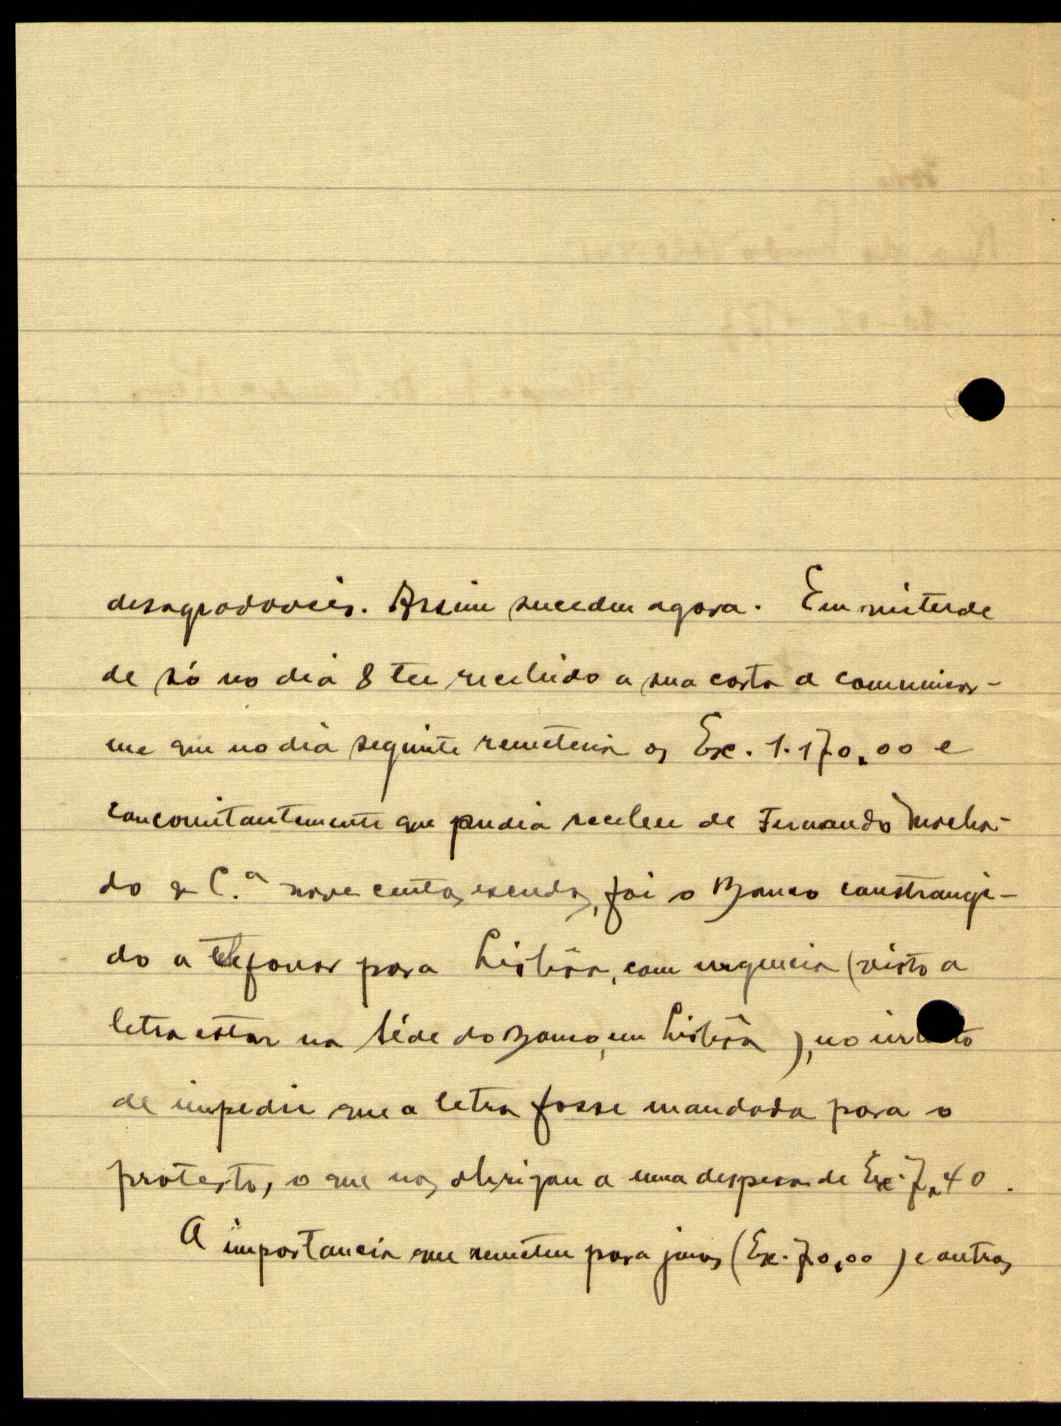 desagradaveis. Assim sucedeu agora. Em virtude
de só no dia 8 ter recebido a sua carta a comunicar-
me que no dia seguinte remeteria os Esc. 1.170,00 e
concomitantemente que podia receber de Fernando Macha-
do & C.ª nove centos escudos, foi o Banco constrangi-
do a telefonar para Lisbôa, com urgencia (visto a
letra estar na Séde do Banco, em Lisbôa), no intuito
de impedir que a letra fosse mandada para o
protesto, o que nos obrigou a uma despesa de Esc. 7,40.
A importancia que remeteu para juros (Esc. 70,00) e outras